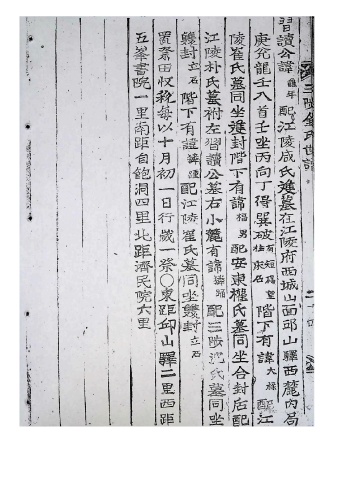 三陟金氏世譜
習讀公諱龜年配江陵咸氏進墓在江陵府西城山面邱山驛西麓內局
庚兌龍壬入首壬坐丙向丁得巽破有短碣望柱床石階下有諱大穟配江
陵崔氏墓同坐雙封階下有諱男配安東權氏墓同坐合封后配
江陵朴氏墓祔左習讀公墓右小麓有諱配三陟沈氏墓同坐
雙封立石階下有諱配江陵崔氏墓同坐雙封立石
置齋田收稅每以十月初一日行歲一祭○東距邱山驛二里西距
五峯書院一里南距自飽洞四里北距濟民院六里